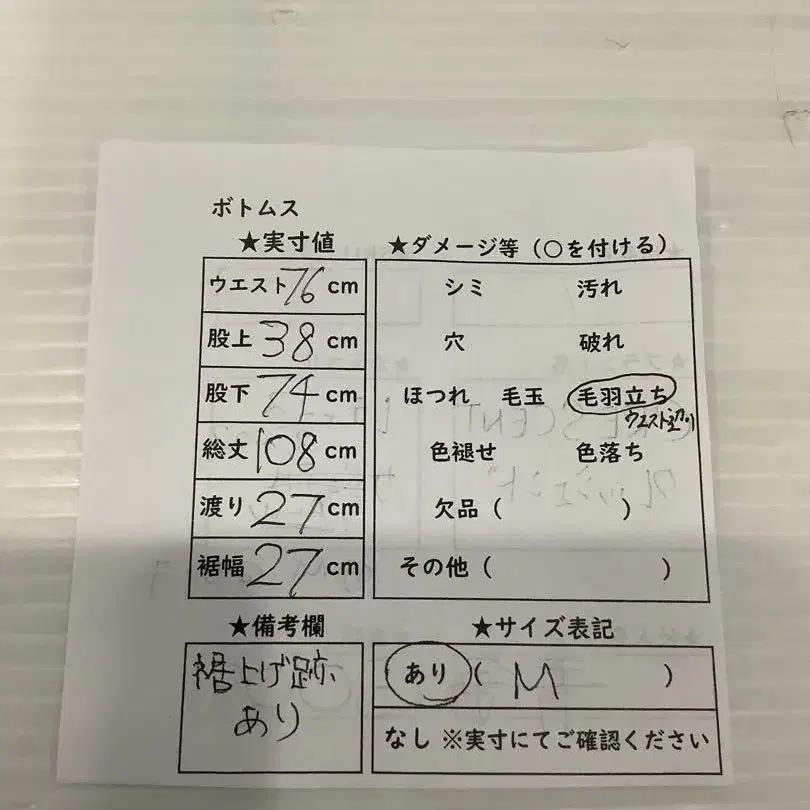 ボトムス
★実寸値
ウエスト 76 cm
股上 38 cm
股下 74 cm
総丈 108 cm
渡り 27 cm
裾幅 27 cm
★ダメージ等（○を付ける）
シミ 汚れ
穴 破れ
ほつれ 毛玉 毛羽立ち
ウエスト辺り
色褪せ 色落ち
欠品（ ）
その他（ ）
★備考欄
裾上げ跡
あり
★サイズ表記
あり（ M ）
なし ※実寸にてご確認ください